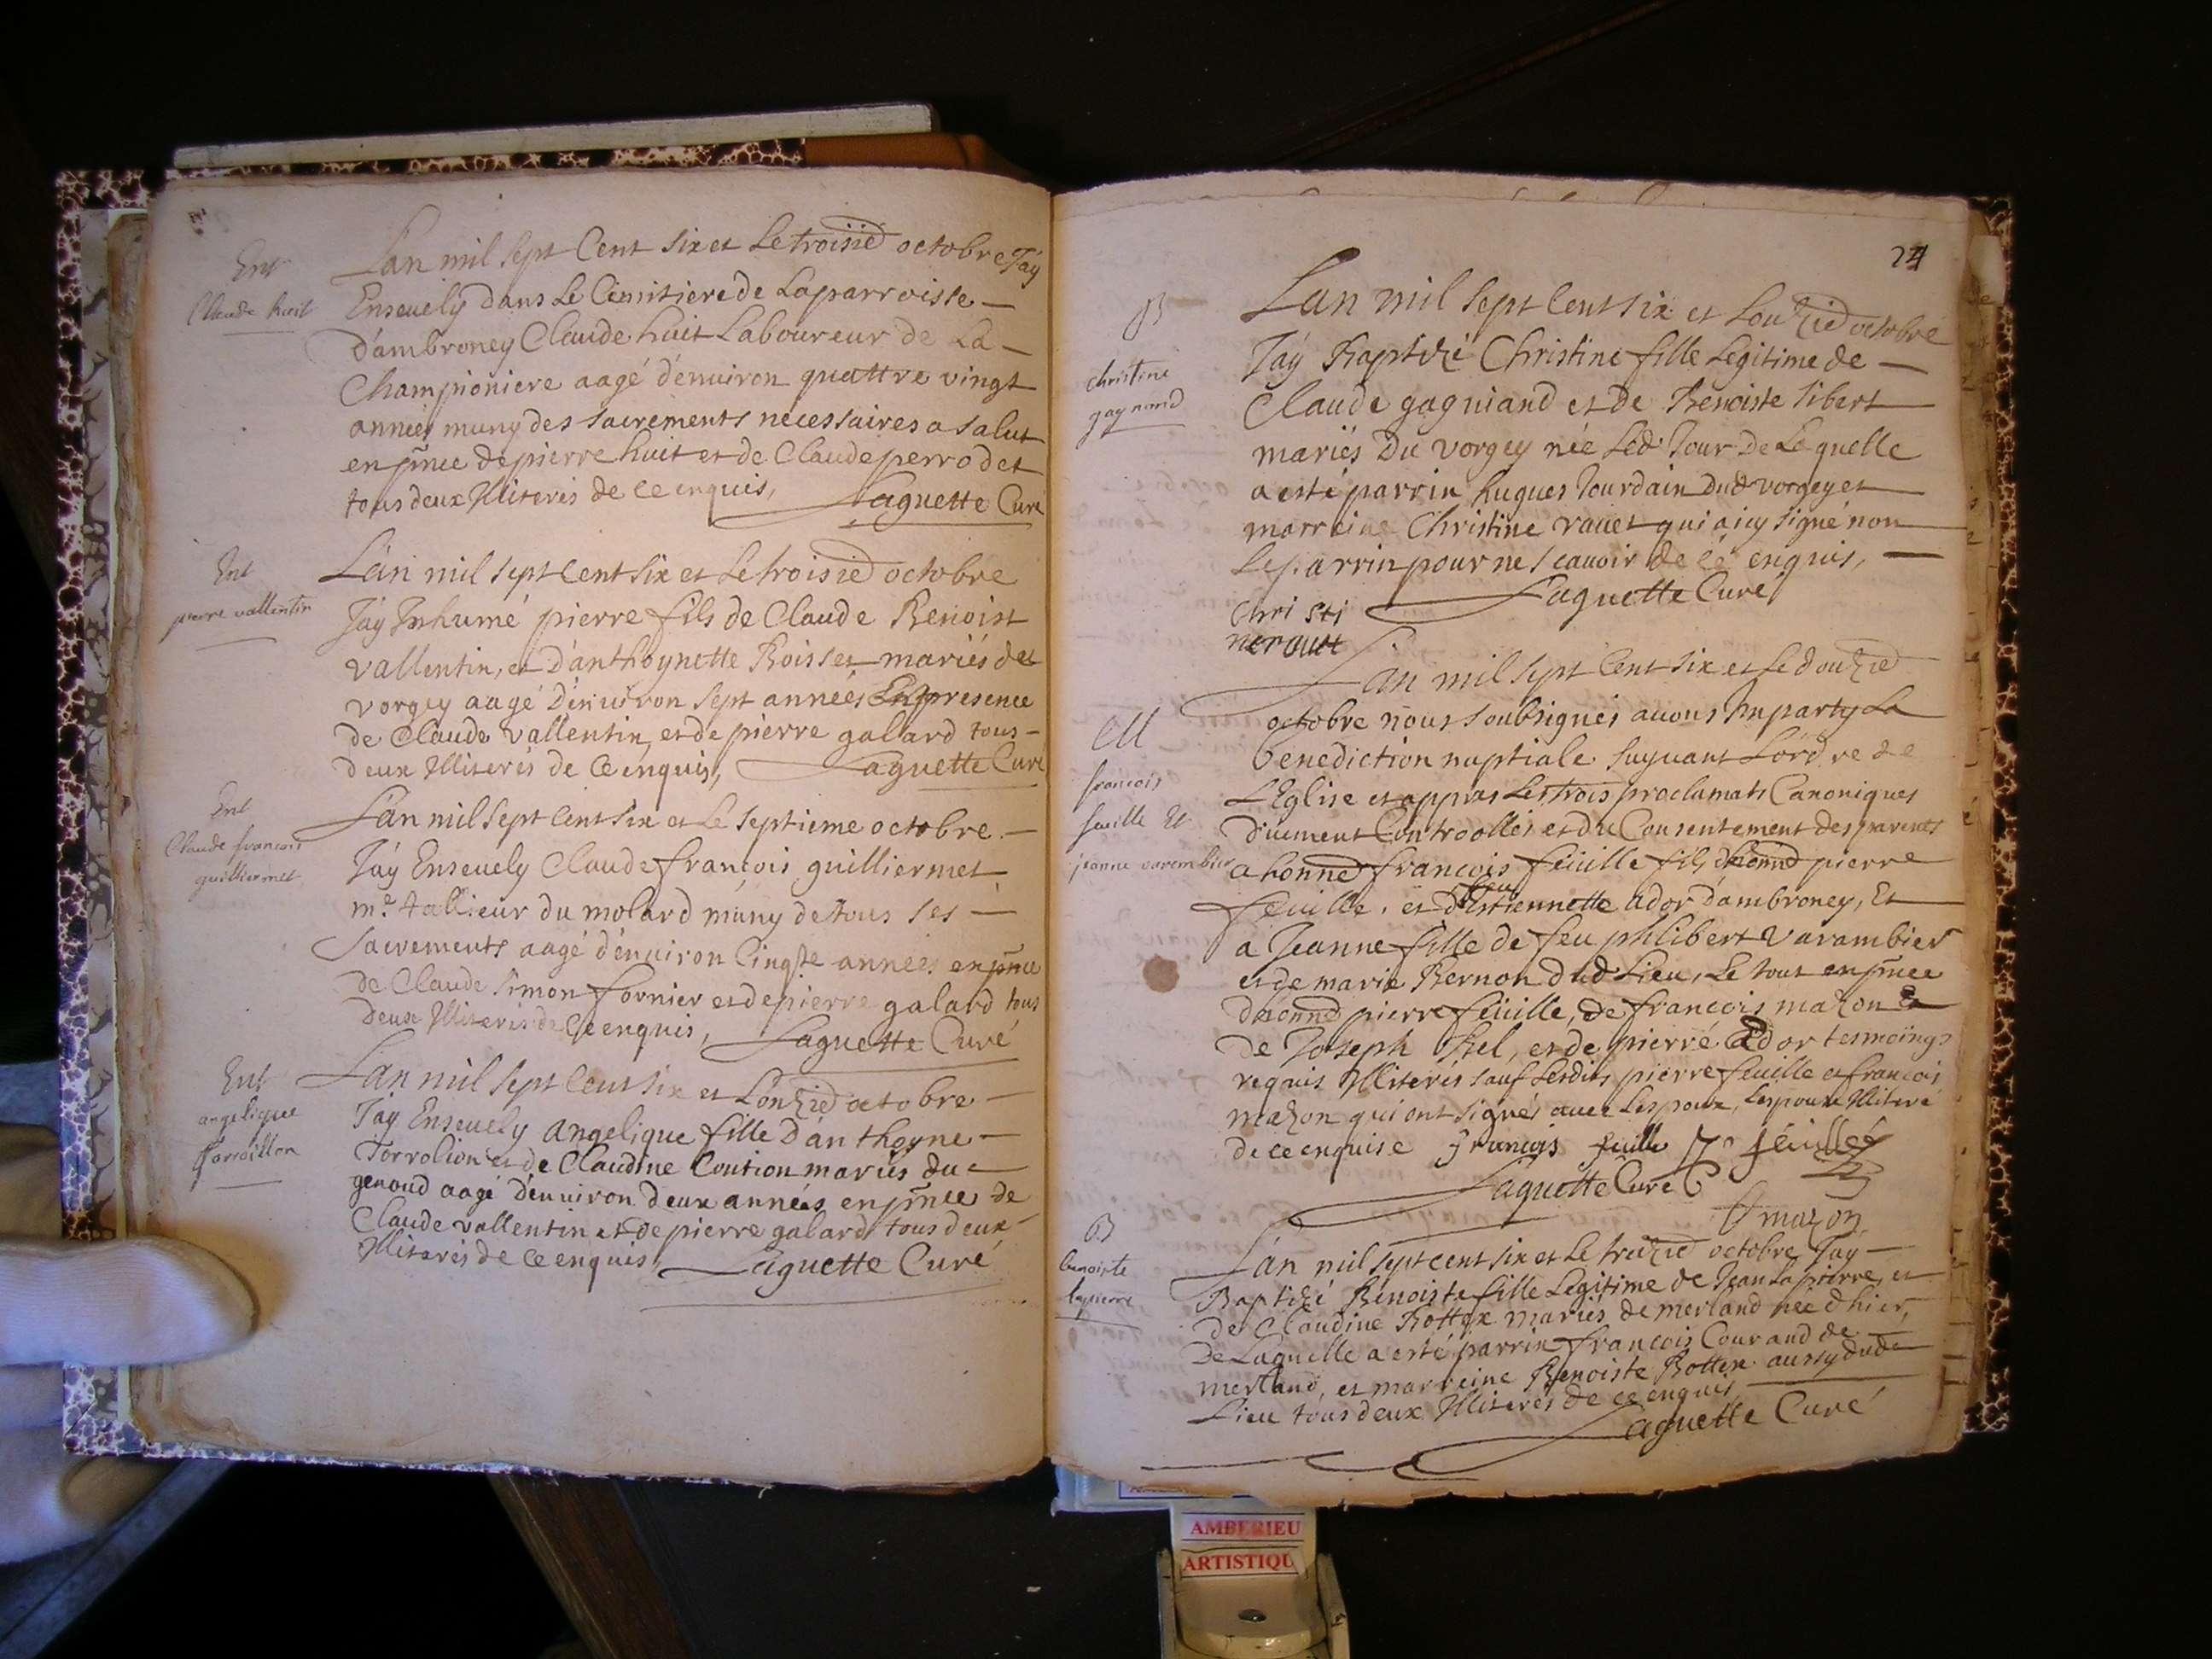 Ent
Claude huit
L'an mil sept Cent six et Le troisie octobre J'ay
Enseuely dans Le Cimitiere de La parroisse
d'ambroney Claude huit Laboureur de La
Championiere aagé d'enuiron quattre vingt
années muny des sacrements necessaires a salut
en pnce de pierre huit et de Claude perrodet
tous deux Illiterés de ce enquis, Laguette Curé
Ent
pierre vallentin
L'an mil sept Cent six et Le troisie octobre
J'ay Inhumé pierre fils de Claude Benoist
vallentin, et d'anthoynette Boisset mariés de
vorgey aagé d'enuiron sept années En presence
de Claude vallentin, et de pierre galard tous
deux Illiterés de Ce enquis, Laguette Curé
Ent
Claude francois
guilliermet
L'an mil Sept Cent six et Le septieme octobre
J'ay Enseuely Claude françois guilliermet
me tallieur du molard muny de tous ses
sacrements aagé d'enuiron Cinqte années en pnce
de Claude simon fornier et de pierre galard tous
deux Illiterés de Ce enquis, Laguette Curé
Ent
angelique
L'an mil sept Cent six et L'onzie octobre
J'ay Enseuely Angelique fille d'anthoyne
Torrolion et de Claudine Coution mariés du
genoud aagé d'enuiron deux années en pnce de
Claude vallentin et de pierre galard tous deux
Illiterés de Ce enquis, Laguette Curé
24
B
christine
gagnand
L'an mil sept Cent six et L'onzie octobre
J'ay Baptizé Christine fille Legitime de
Claude gagniand et de Benoiste Sibert
mariés Du vorgey née Led Jour De Laquelle
a esté parrin hugues Jourdain Dud vorgey et
marreine Christine rauet qui a icy signé non
Le parrin pour ne scauoir de ce enquis,
Laguette Curé
Chri sti
ne rauet
M
francois
feuille Et
jeanne varembier
L'an mil sept Cent six et Le douzie
octobre nous soubsignés auons Imparty La
benediction nuptiale suyuant L'ordre de
L'Eglise et appres Les trois proclamats Canoniques
düement Controollés et du Consentement des parents
a honned francois feüille fils d'honned pierre
feüille, et d'feu Estiennette Ador d'ambroney, Et
a Jeanne fille de feu philibert Varambier
et de marie Bernon dud Lieu, Le tout en pnce
d'honned pierre feüille, de francois mazon Et
de Joseph Bel, et de pierre Ador tesmoings
requis Illiterés sauf Lesdits pierre feuille et francois
mazon qui ont signés auec L'espoux, L'espouse Illiteré
de ce enquise francois feuille p feüillé
Laguette Curé
f mazon
B
benoiste
lapierre
L'an mil sept cent six et Le treizie octobre J'ay
Baptizé Benoiste fille Legitime de Jean Lapierre, et
de Claudine Bottex mariés de merland née d'hier,
De Laquelle a esté parrin francois Courand de
merland, et marreine Benoiste Bottex aussy dud
Lieu tous deux Illiterés de ce enquis
Laguette Curé
AMBERIEU
ARTISTIQU